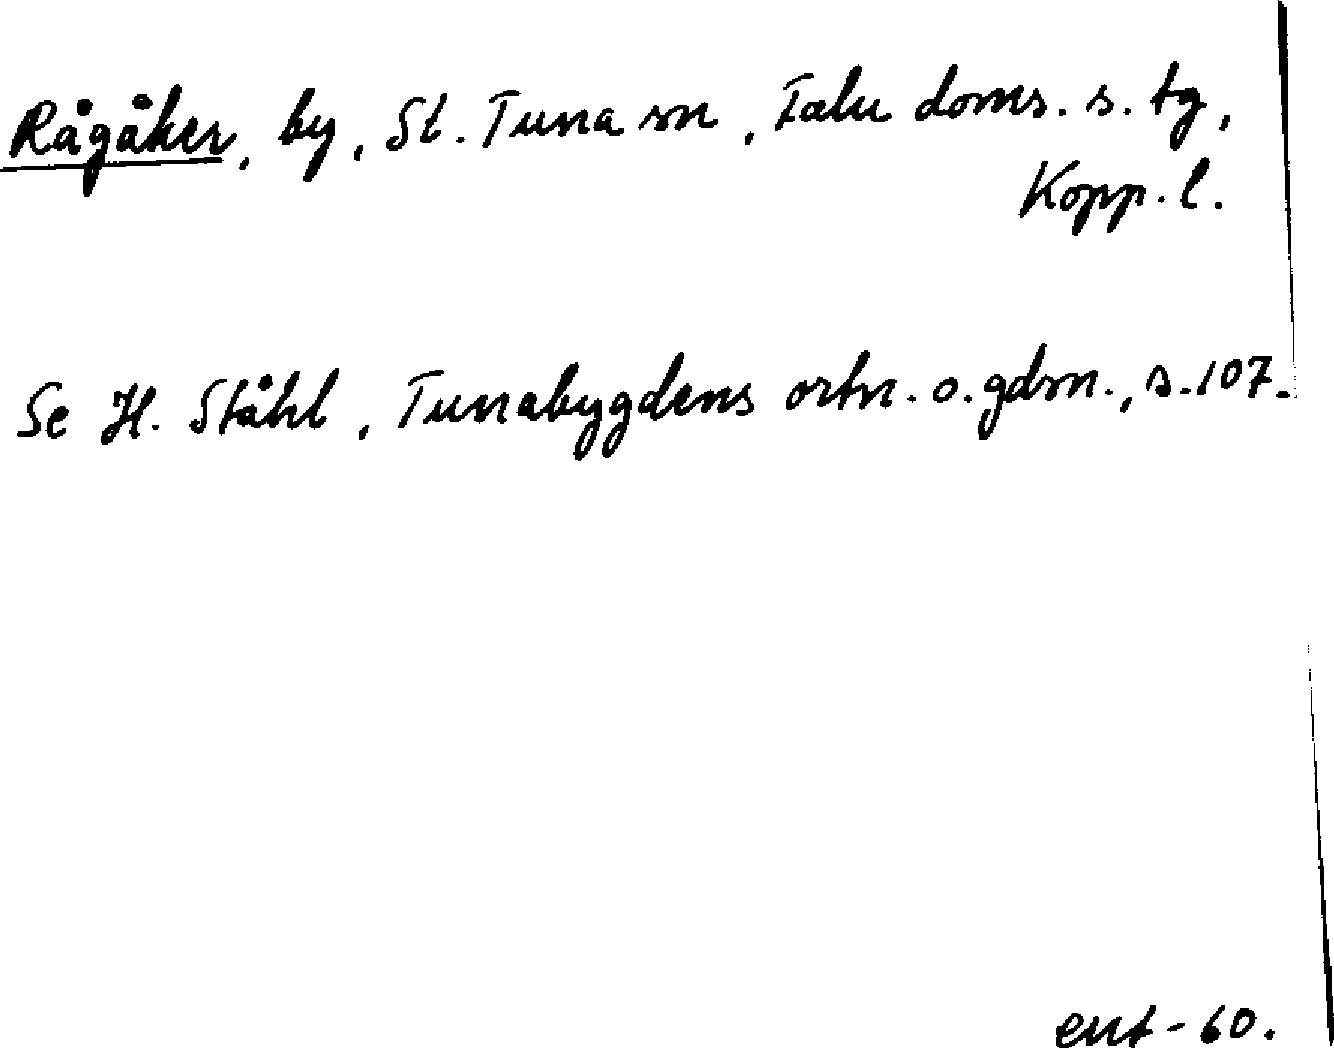 Rågåker, by, St. Tuna sn, Falu doms. s. tg,
Kopp. l.
Se H. Ståhl, Tunabygdens ortn. o. gdsn., s. 107.
ent-60.